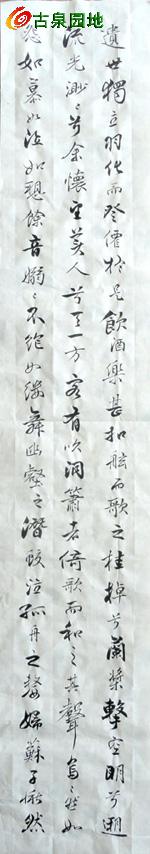 古泉园地
遺世獨立羽化而登僊於是飲酒樂甚扣舷而歌之桂棹兮蘭槳擊空明兮遡
流光渺〻兮余懷望美人兮天一方客有吹洞簫者倚歌而和之其聲烏〻然如
怨如慕如泣如愬餘音嫋〻不絕如縷舞幽壑之潛蛟泣孤舟之嫠婦蘇子愀然